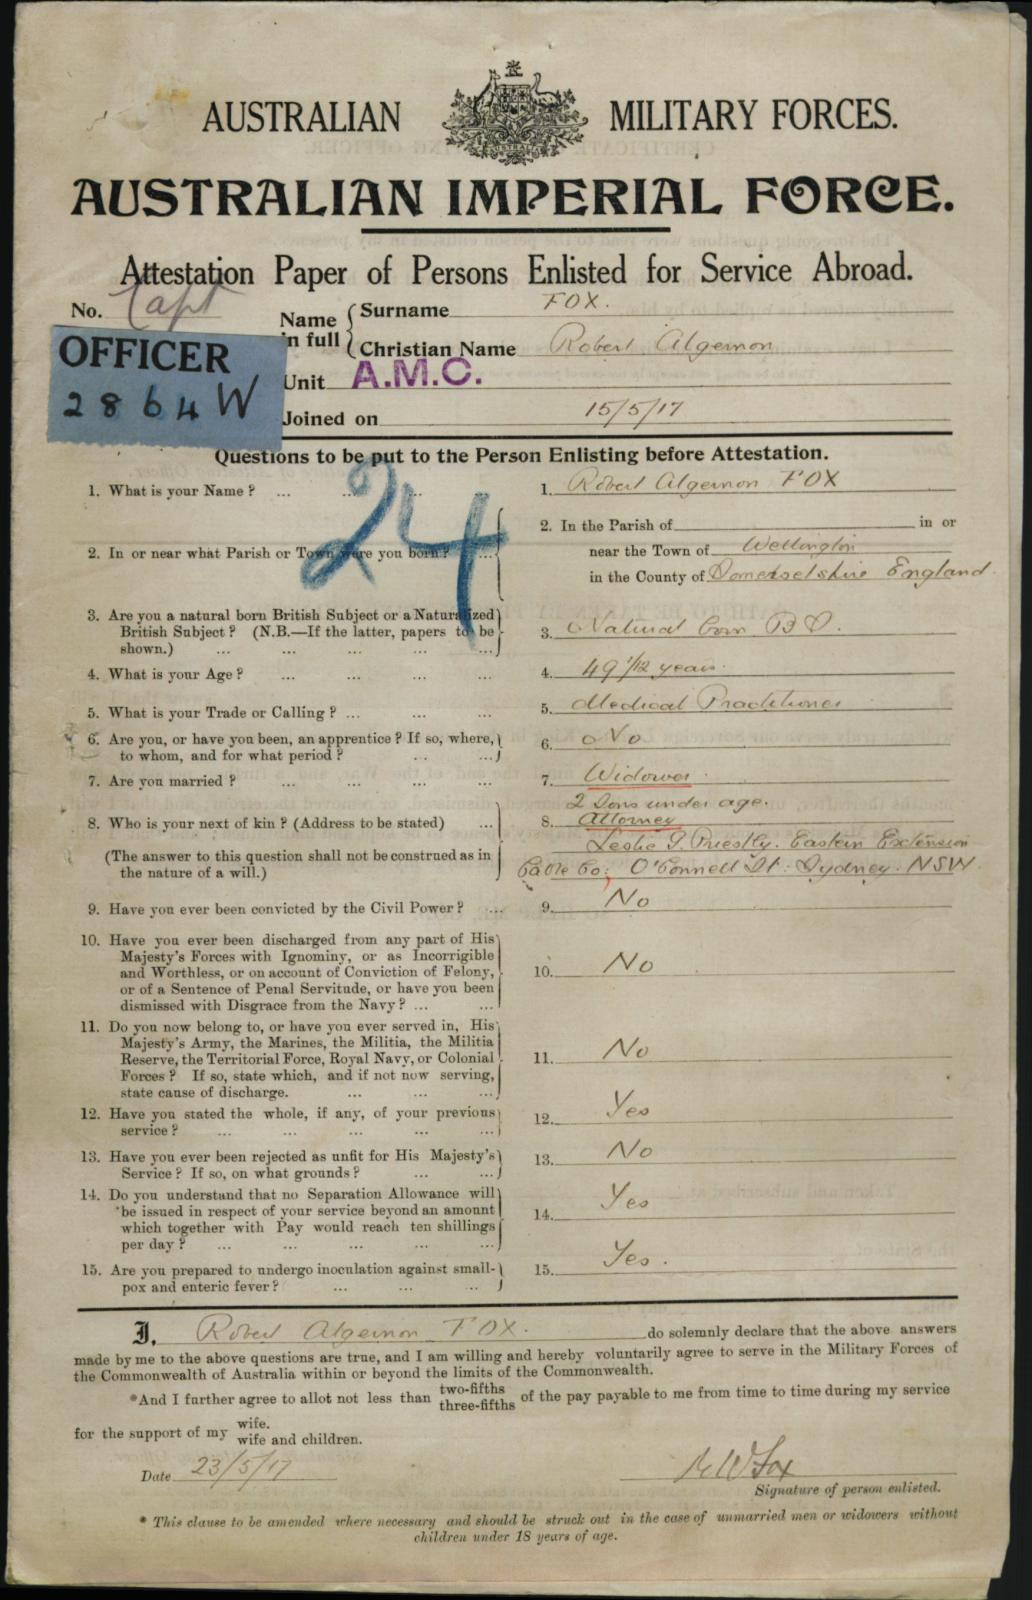 AUSTRALIAN MILITARY FORCES.
AUSTRALIA
AUSTRALIAN IMPERIAL FORCE.
Attestation Paper of Persons Enlisted for Service Abroad.
No. Capt
Name in full { Surname FOX.
Christian Name Robert Algernon
OFFICER
2864W
Unit A.M.C.
Joined on 15/5/17
Questions to be put to the Person Enlisting before Attestation.
24
1. What is your Name? ... ... ... ... 1. Robert Algernon FOX
2. In or near what Parish or Town were you born? ... 2. In the Parish of in or
near the Town of Wellington
in the County of Somersetshire England
3. Are you a natural born British Subject or a Naturalized
British Subject? (N.B.—If the latter, papers to be
shown.) ... ... ... ... ... 3. Natural born B S.
4. What is your Age? ... ... ... ... 4. 49 1/12 years.
5. What is your Trade or Calling? ... ... ... 5. Medical Practitioner
6. Are you, or have you been, an apprentice? If so, where,
to whom, and for what period? ... ... 6. No
7. Are you married? ... ... ... ... 7. Widower.
2 Sons under age.
8. Who is your next of kin? (Address to be stated) ... 8. Attorney
Leslie G. Priestly. Eastern Extension
(The answer to this question shall not be construed as in
the nature of a will.) Cable Co; O'Connell St. Sydney. NSW
9. Have you ever been convicted by the Civil Power? ... 9. No
10. Have you ever been discharged from any part of His
Majesty's Forces with Ignominy, or as Incorrigible
and Worthless, or on account of Conviction of Felony,
or of a Sentence of Penal Servitude, or have you been
dismissed with Disgrace from the Navy? ... ... 10. No
11. Do you now belong to, or have you ever served in, His
Majesty's Army, the Marines, the Militia, the Militia
Reserve, the Territorial Force, Royal Navy, or Colonial
Forces? If so, state which, and if not now serving,
state cause of discharge. ... ... ... 11. No
12. Have you stated the whole, if any, of your previous
service? ... ... ... ... ... 12. Yes
13. Have you ever been rejected as unfit for His Majesty's
Service? If so, on what grounds? ... ... 13. No
14. Do you understand that no Separation Allowance will
be issued in respect of your service beyond an amount
which together with Pay would reach ten shillings
per day? ... ... ... ... ... 14. Yes
15. Are you prepared to undergo inoculation against small-
pox and enteric fever? ... ... ... 15. Yes.
I, Robert Algernon FOX. do solemnly declare that the above answers
made by me to the above questions are true, and I am willing and hereby voluntarily agree to serve in the Military Forces of
the Commonwealth of Australia within or beyond the limits of the Commonwealth.
*And I further agree to allot not less than two-fifths three-fifths of the pay payable to me from time to time during my service
for the support of my wife. wife and children.
Date 23/5/17
Signature of person enlisted.
* This clause to be amended where necessary and should be struck out in the case of unmarried men or widowers without
children under 18 years of age.